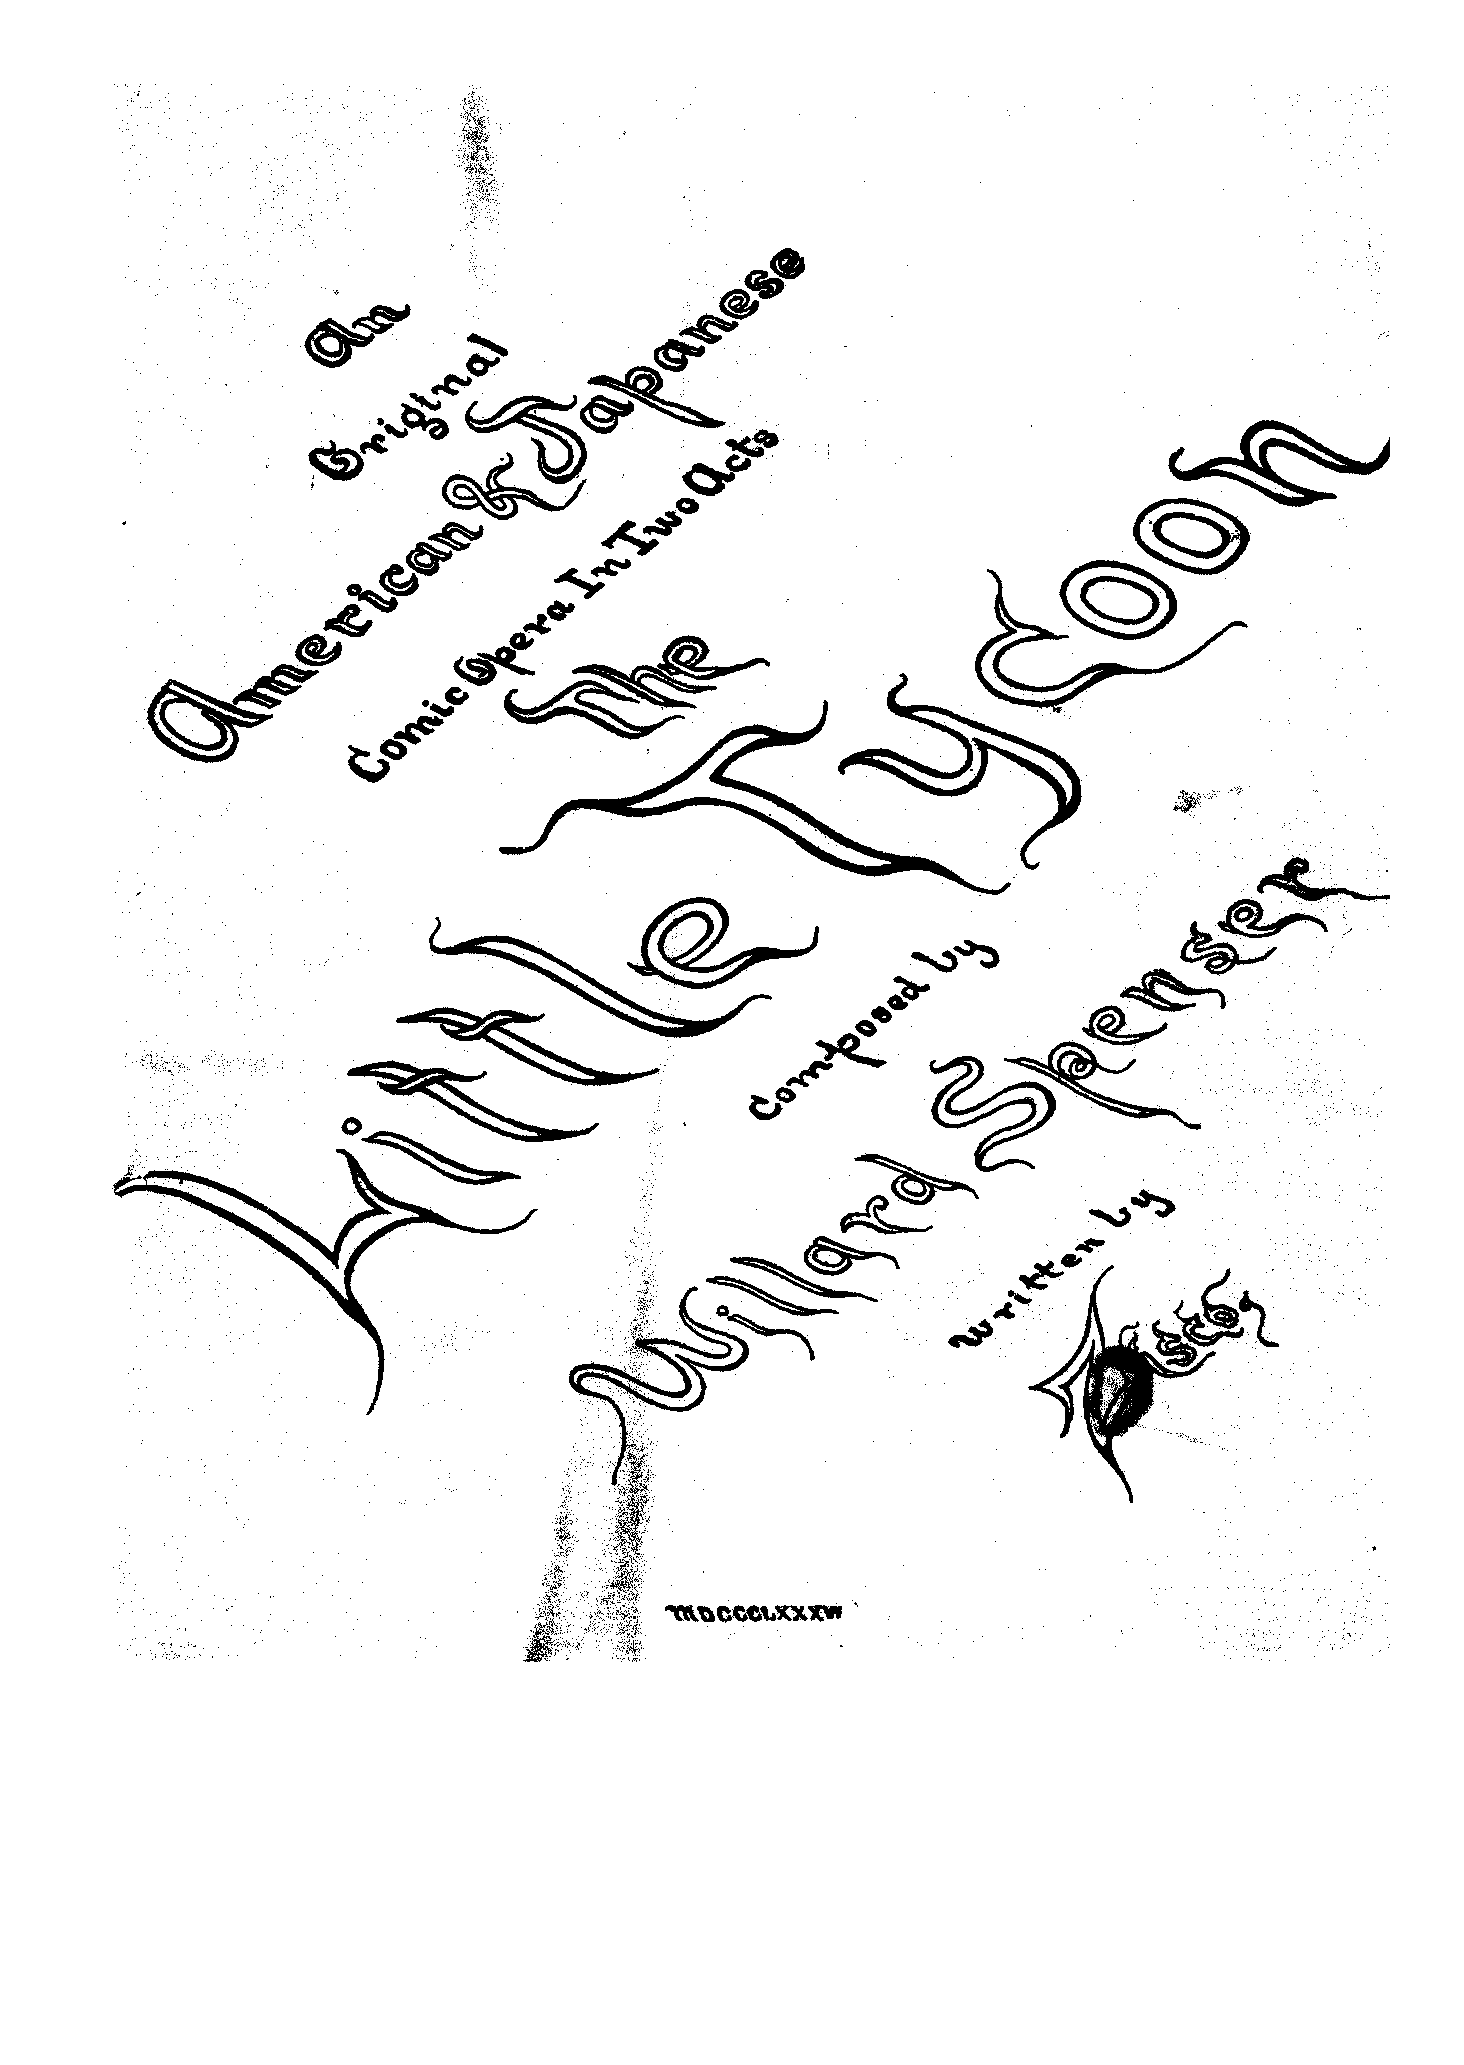 An
Original
American & Japanese
Comic Opera In Two Acts
The
Little
Tycoon
Composed by
Willard Spenser
Written by